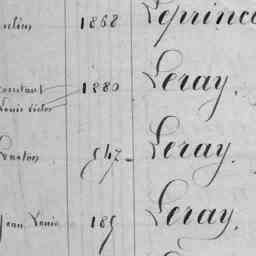 1868 Leprince
constant 1880 Leray.
Louis victor
Gaston 947 Leray.
Jean Louis 185 Leray.